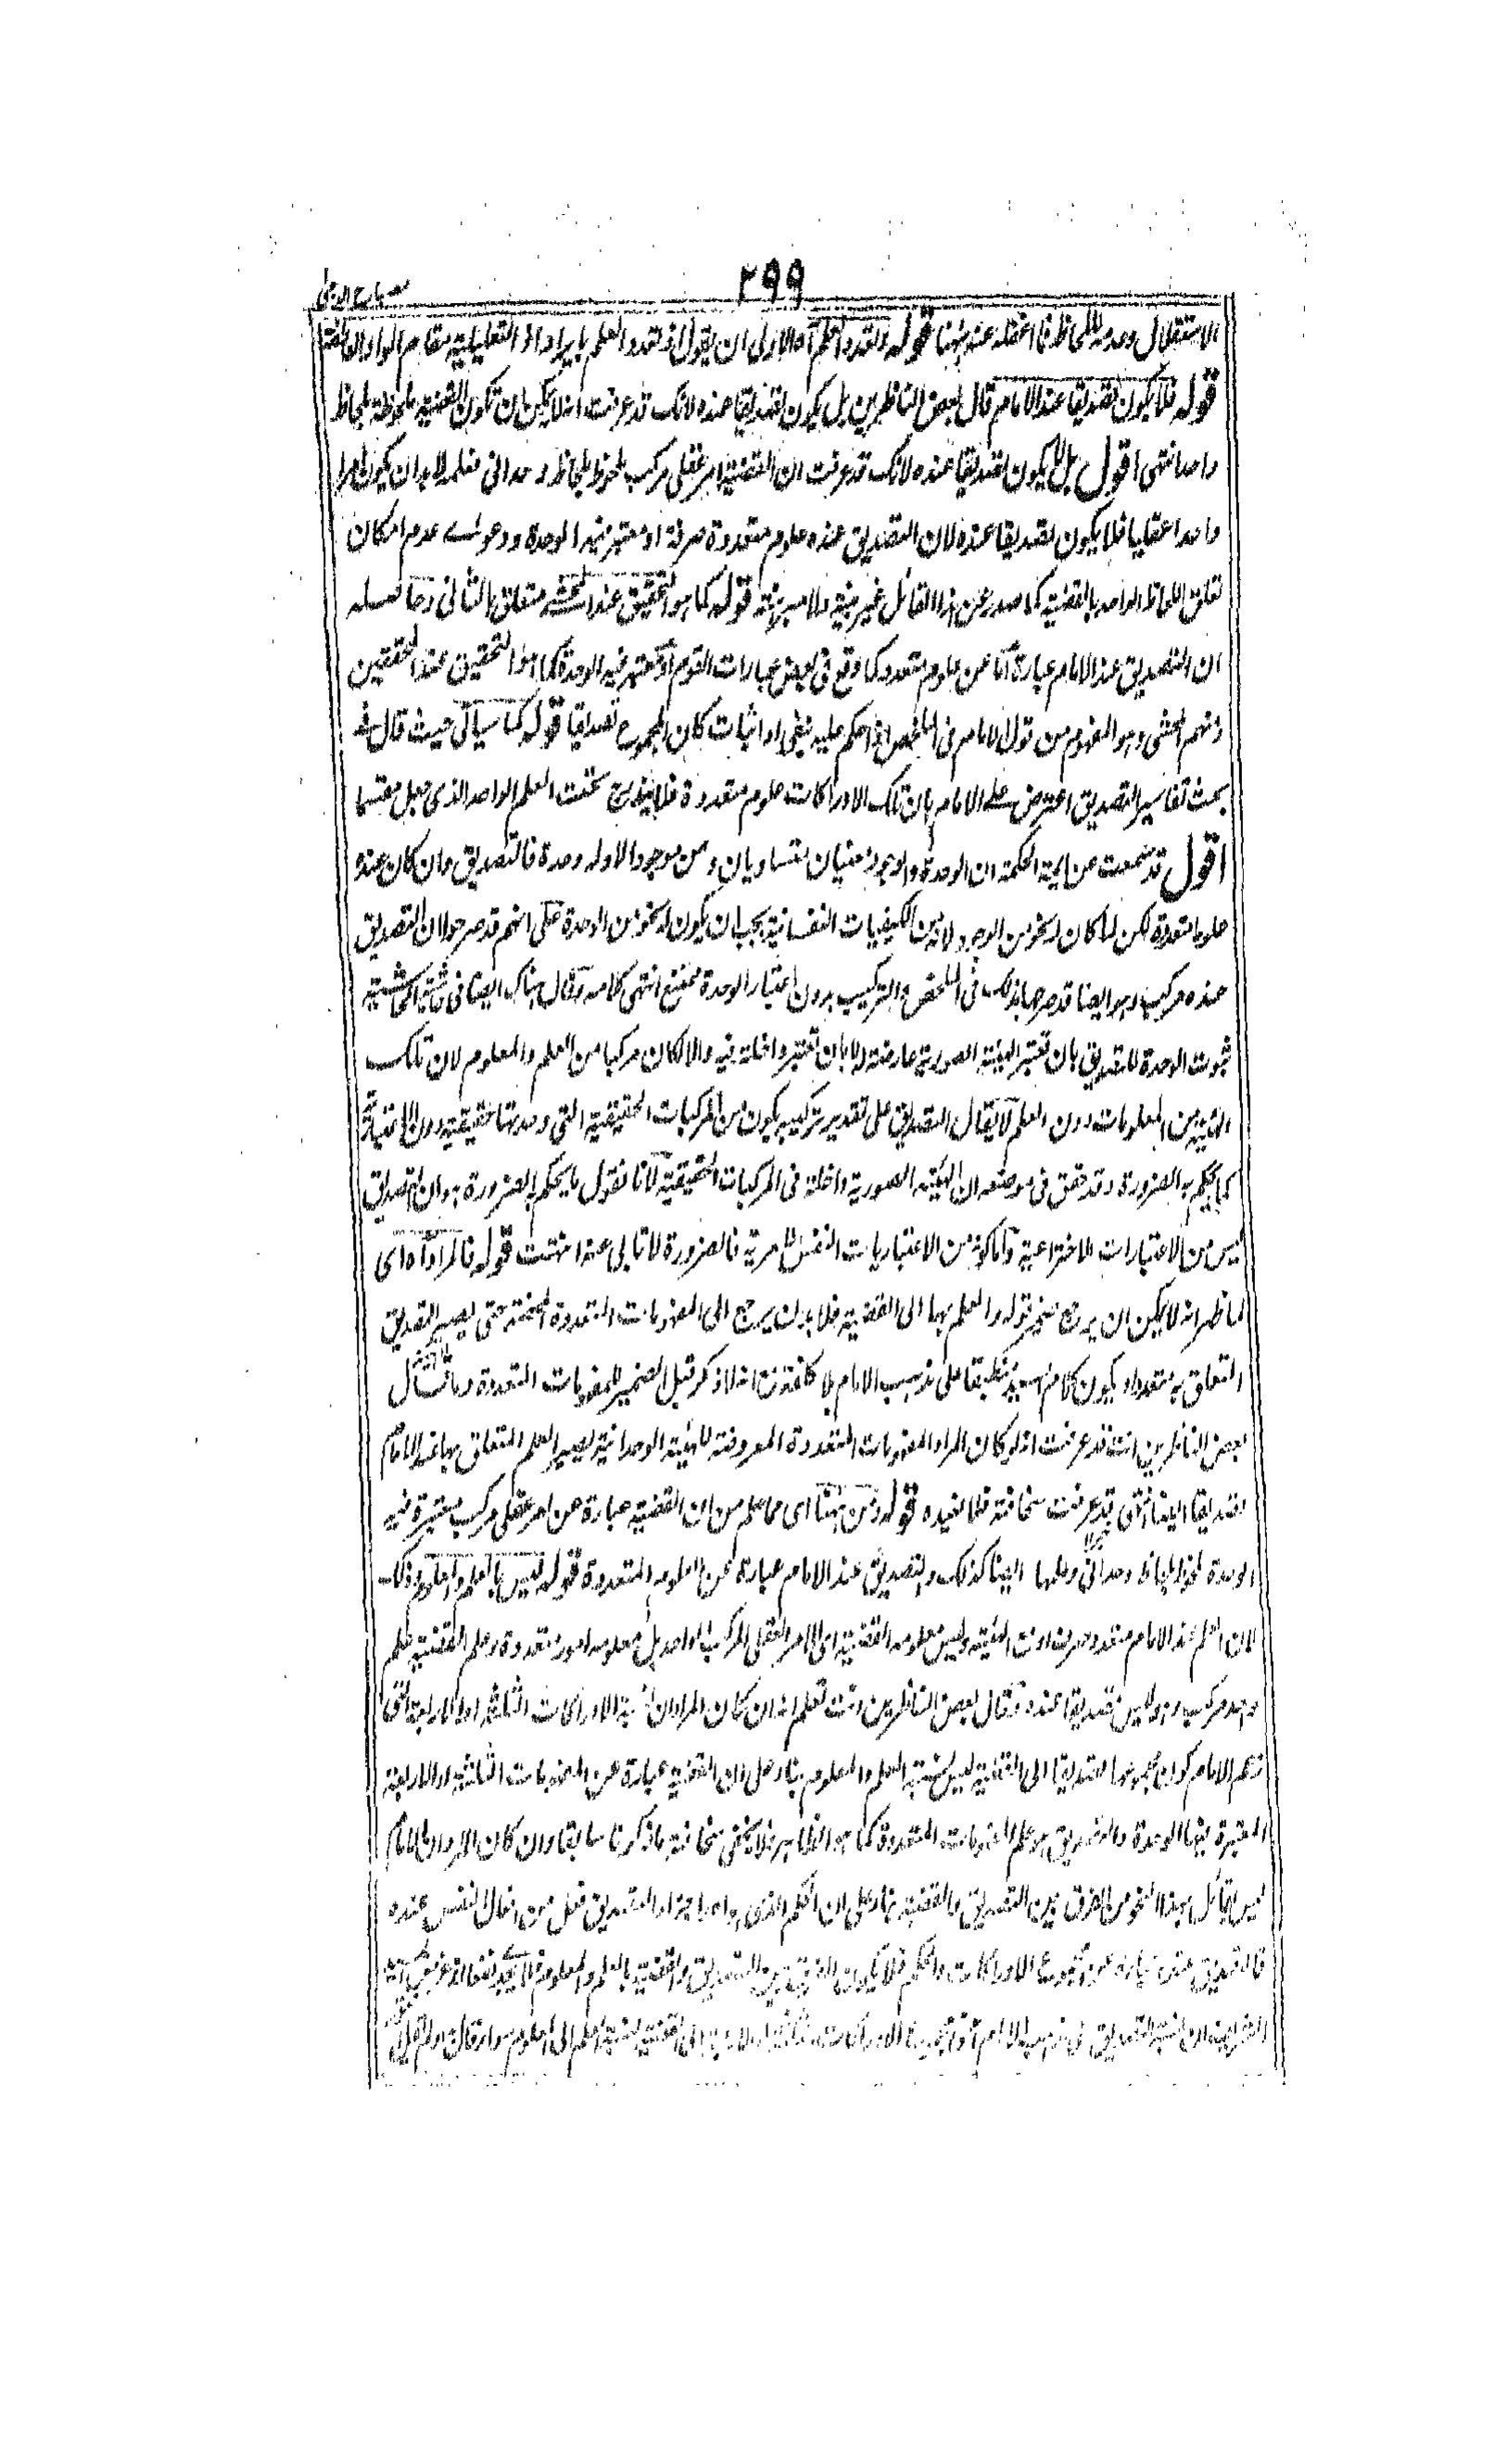 ٢٩٩
الاستقلال وعدمه للحاظ فما اغفله عنه ههنا قوله ولتعدد العلم آه الاولى ان يقول اذ لتعدد العلم بايراد اذ التعليلية مقام الواو العاطفة
قوله فلا يكون تصديقا عند الامام قال بعض الناظرين بل يكون تصديقا عنده لانك قد عرفت انه لا يمكن ان تكون القضية ملحوظة بلحاظ
واحد انتهى اقول بل لا يكون تصديقا عنده لانك قد عرفت ان القضية امر عقلي مركب ملحوظ بلحاظ وحداني فعلمه لا بد ان يكون امرا
واحدا عقليا فلا يكون تصديقا عنده لان التصديق عنده علوم متعددة صرفة او معتبر فيه الوحدة ودعوے عدم امكان
تعلق اللحاظ الواحد بالقضية كما صدر عن هذا القائل غير بينة ولا مبرهنة قوله كما هو التحقيق عند المحشے متعلق بالثاني وحاصله
ان التصديق عند الامام عبارة اما عن علوم متعدد كما وقع في بعض عبارات القوم او معتبر فيه الوحدة كما هو التحقيق عند المحققين
ومنهم المحشي وهو المفهوم من قول الامام في الملخص اذا حكم عليه بنفي او اثبات كان المجموع تصديقا قوله كما سيأتي حيث قال في
بحث تفاسير التصديق اعترض على الامام بان تلك الادراكات علوم متعددة فلا يندرج تحت العلم الواحد الذي جعل مقسما
اقول قد سمعت من ائمة الحكمة ان الوحدة والوجود معنيان متساويان ومن موجود الا وله وحدة فالتصديق وان كان عنده
علوما متعددة لكن لما كان له نحو من الوجود لانه من الكيفيات النفسانية يجب ان يكون له نحو من الوحدة على انهم قد صرحوا لان التصديق
عنده مركب وهو ايضا قد صرح بذلك في الملخص والتركيب بدون اعتبار الوحدة ممتنع انتهى كلامه وقال هناك ايضا في حاشية الحاشية
ثبوت الوحدة للتصديق بان تعتبر الهيئة الصورية عارضة له لا بان تعتبر داخلة فيه والا لكان مركبا من العلم والمعلوم لان تلك
الهيئة من المعلومات دون العلم لا يقال التصديق على تقدير تركيبه يكون من المركبات الحقيقية التي وحدتها حقيقية دون الاعتبارية
كما يحكم به الضرورة وقد حقق في موضعه ان الهيئة الصورية داخلة في المركبات الحقيقية لانا نقول ما يحكم به الضرورة هو ان التصديق
ليس من الاعتبارات الاختراعية واما كونه من الاعتباريات النفس الامرية فالضرورة لا تابى عنه انتهت قوله فالمراد آه اى
لما ظهر انه لا يمكن ان يرجع ضمير قوله والعلم بها الى القضية فلا بد ان يرجع الى المفهومات المتعددة المحضة حتى يصير التصديق
المتعلق به متعددا ويكون كلامه حينئذ منطبقا على مذهب الامام بلا كلفة مع انه لا ذكر قبل الضمير للمفهومات المتعددة وما قال
بعض الناظرين انت قد عرفت انه لو كان المراد المفهومات المتعددة المعروضة للهيئة الوحدانية يصير العلم المتعلق بها عند الامام
تصديقا ايضا انتهى قد عرفت سخافته فلا نعيده قوله ومن ههنا اى مما علم من ان القضية عبارة عن امر عقلي مركب معتبرة فيه
الوحدة ملحوظ بلحاظ وحداني وعلمها ايضا كذلك والتصديق عند الامام عبارة عن العلوم المتعددة قوله ليس بالعلم والمعلوم وذلك
لان العلم عند الامام متعدد صرف او مع الهيئة وليس معلومه القضية اى الامر العقلي المركب الواحد بل معلومه امور متعددة وعلم القضية علم
واحد مركب وهو ليس تصديقا عنده وقال بعض الناظرين وانت تعلم انه ان كان المراد ان نسبة الادراكات الثلثة او الاربعة التي
زعم الامام كون مجموعها تصديقا الى القضية ليس نسبة العلم والمعلوم بناء على ان القضية عبارة عن المفهومات الثلثة او الاربعة
المعتبرة فيها الوحدة والتصديق هو علم المفهومات المتعددة كما هو الظاهر فلا يخفى سخافته بما ذكرنا سابقا وان كان المراد ان الامام
ليس بقائل بهذا النحو من الفرق بين التصديق والقضية بناء على ان الحكم الذي هو احد اجزاء التصديق فعل من افعال النفس عنده
فالتصديق عنده عبارة عن مجموع الادراكات والحكم فلا يكون الفرق بين التصديق والقضية بالعلم والمعلوم
ان نسبة التصديق على مذهب الامام الى القضية نسبة العلم الى المعلوم سواء